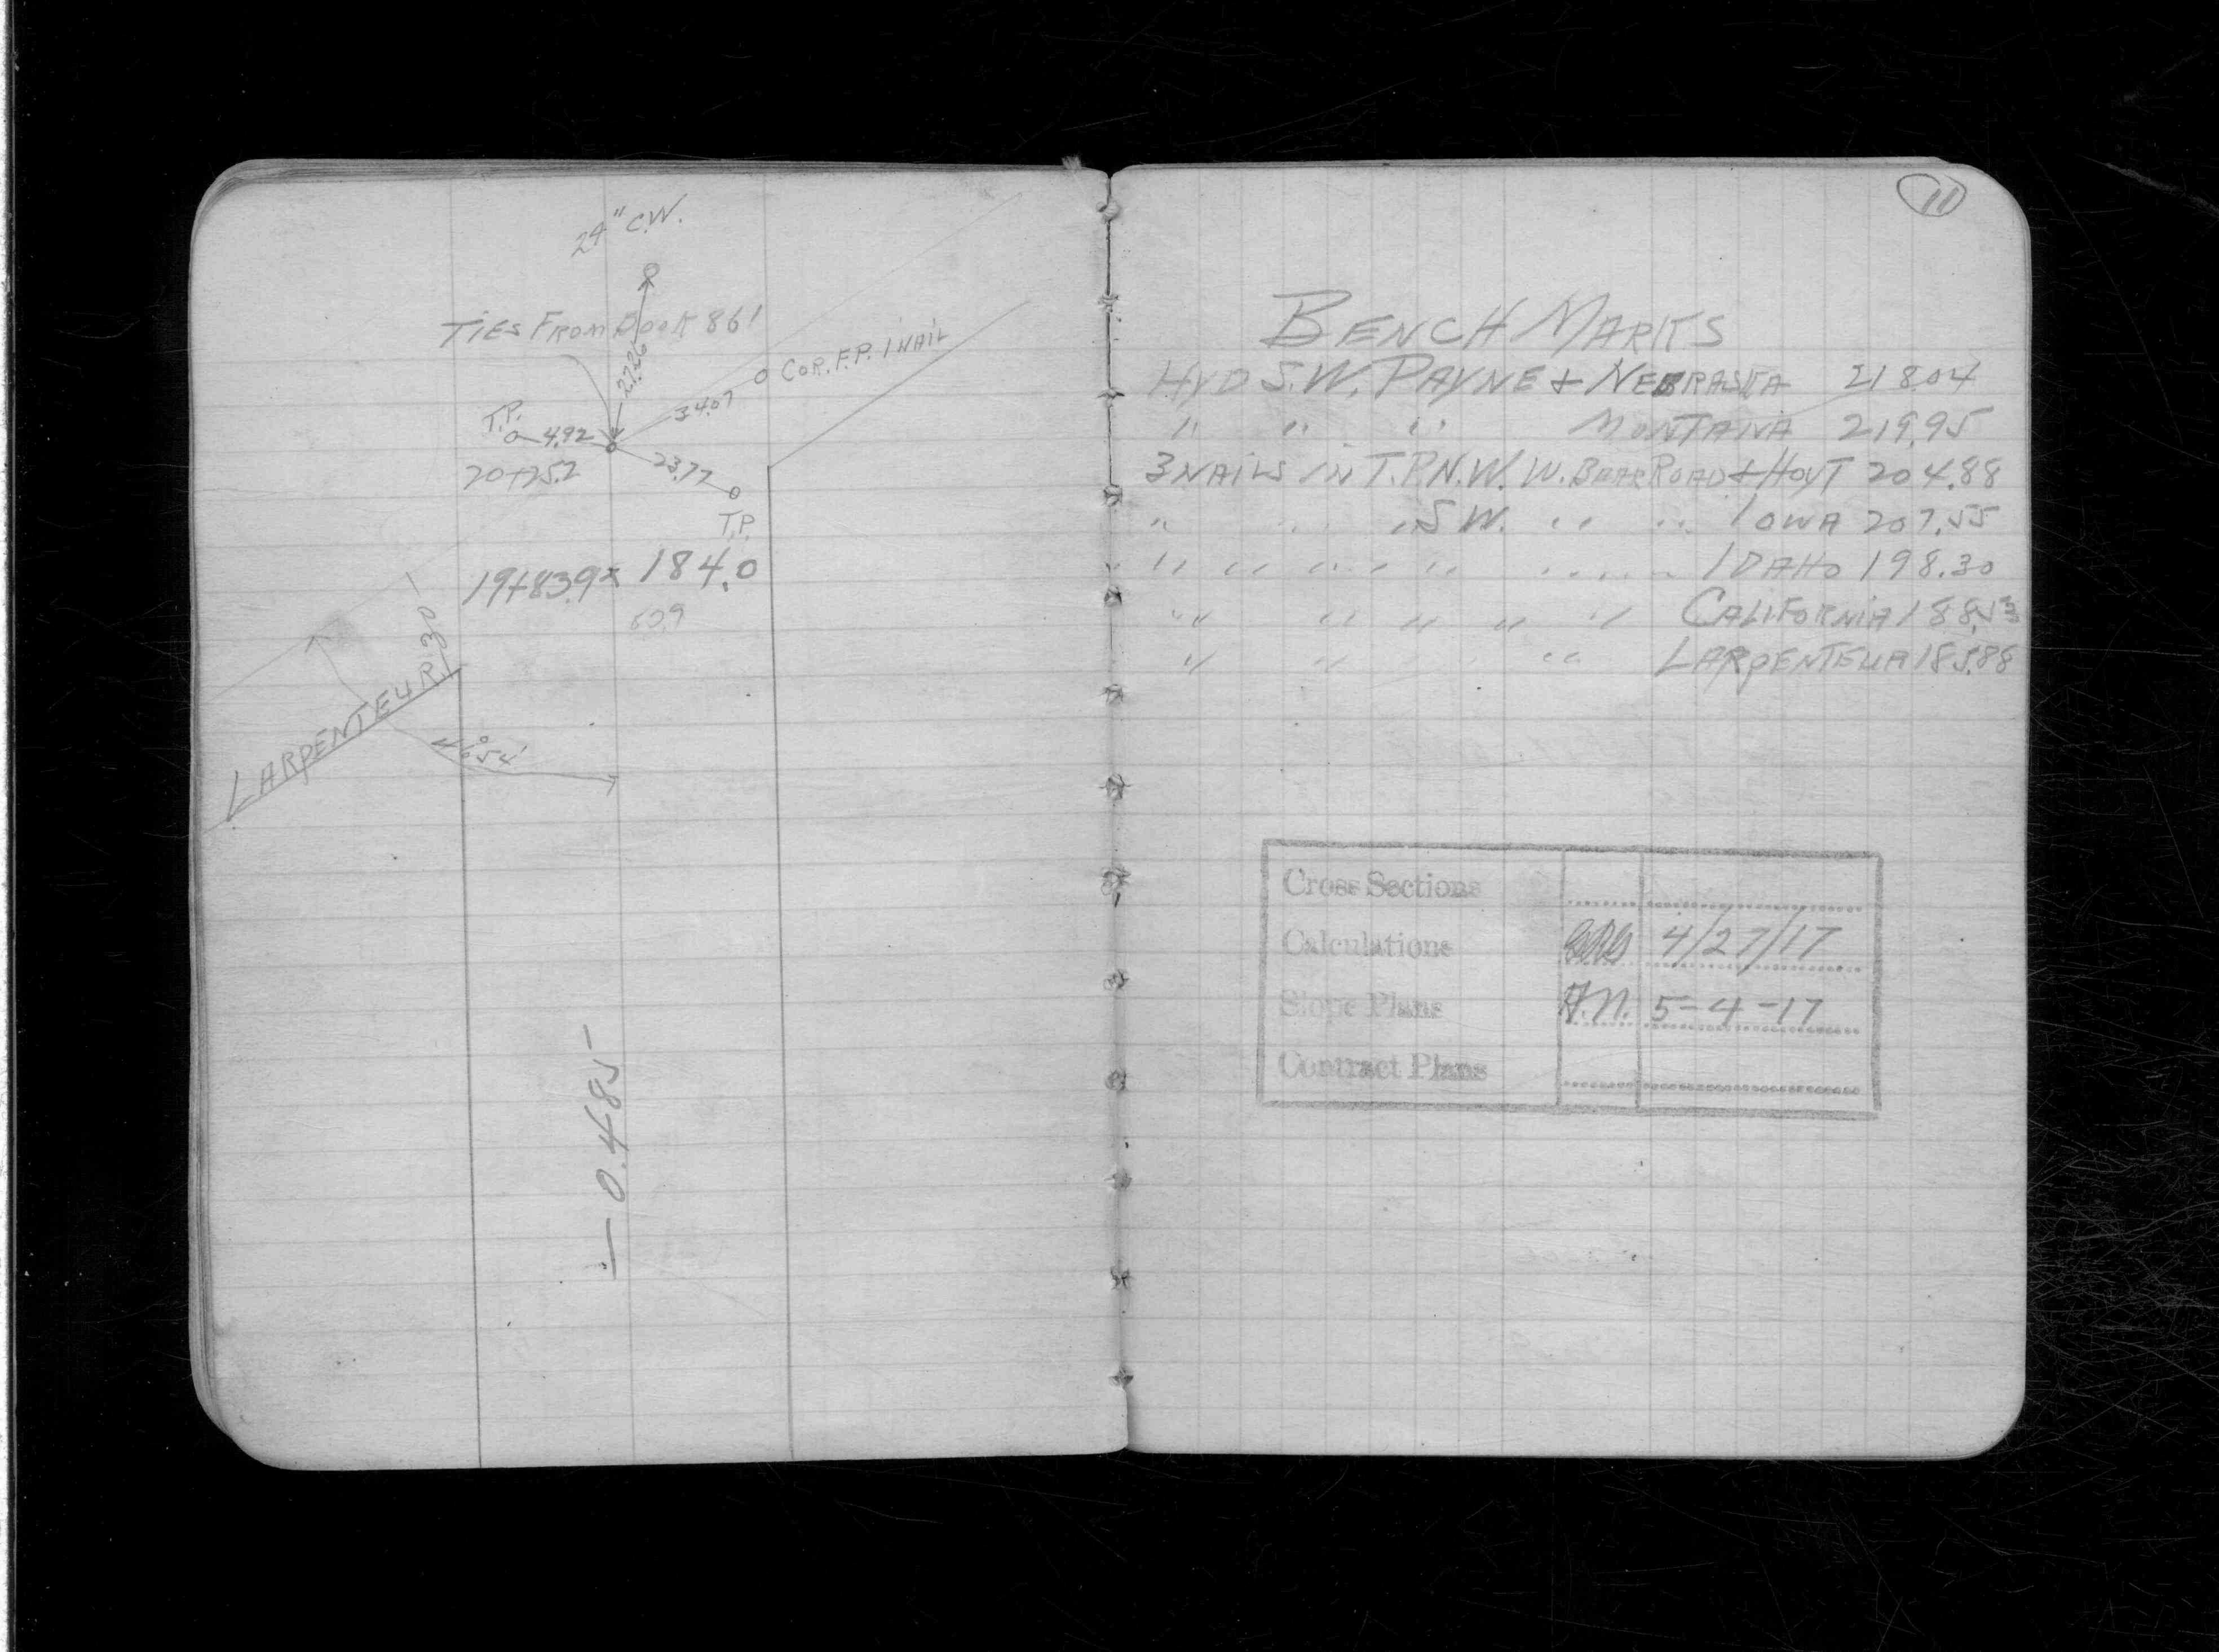 24" C.W.
TIES FROM BOOK 861
27.26
COR. F.P. 1 NAIL
34.07
T.P.
4.92
20+75.2
23.77
T.P.
19+83.9 = 184.0
30
LARPENTEUR
54'
— 0.485 —
11
BENCH MARKS
HYD S.W. PAYNE + NEBRASKA 218.04
" " " MONTANA 219.95
3 NAILS IN T.P. N.W. W. BEAR ROAD + HOYT 204.88
" " " S.W. " " IOWA 207.55
" " " " " " IDAHO 198.30
" " " " " CALIFORNIA 188.53
" " " " LARPENTEUR 185.88
Cross Sections
Calculations 4/27/17
Slope Plans A.N. 5-4-17
Contract Plans